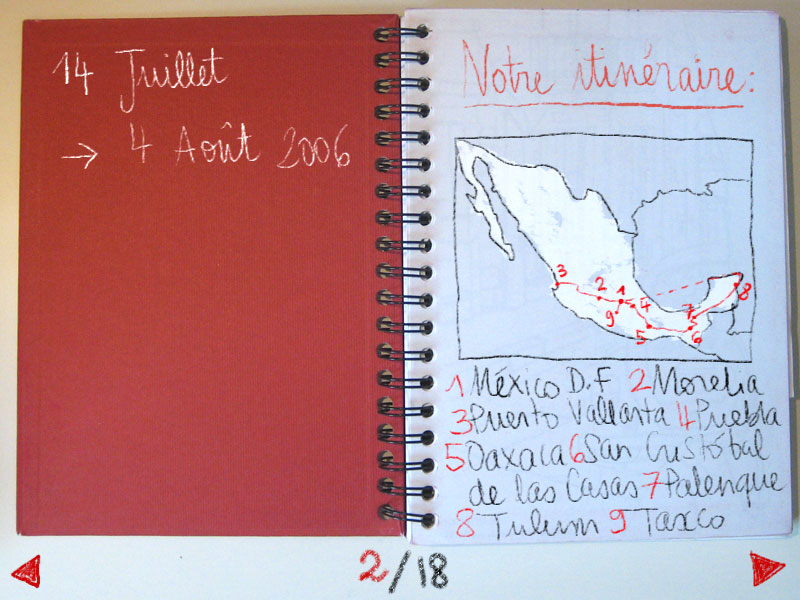 14 Juillet
→ 4 Août 2006
Notre itinéraire:
3
2
1
4
9
5
7
6
8
1 México D.F 2 Morelia
3 Puerto Vallarta 4 Puebla
5 Oaxaca 6 San Cristóbal
de las Casas 7 Palenque
8 Tulum 9 Taxco
2/18